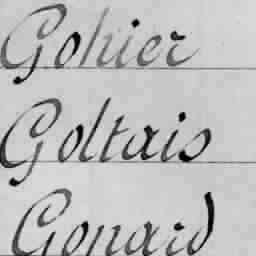 Gohier
Goltais
Gonard